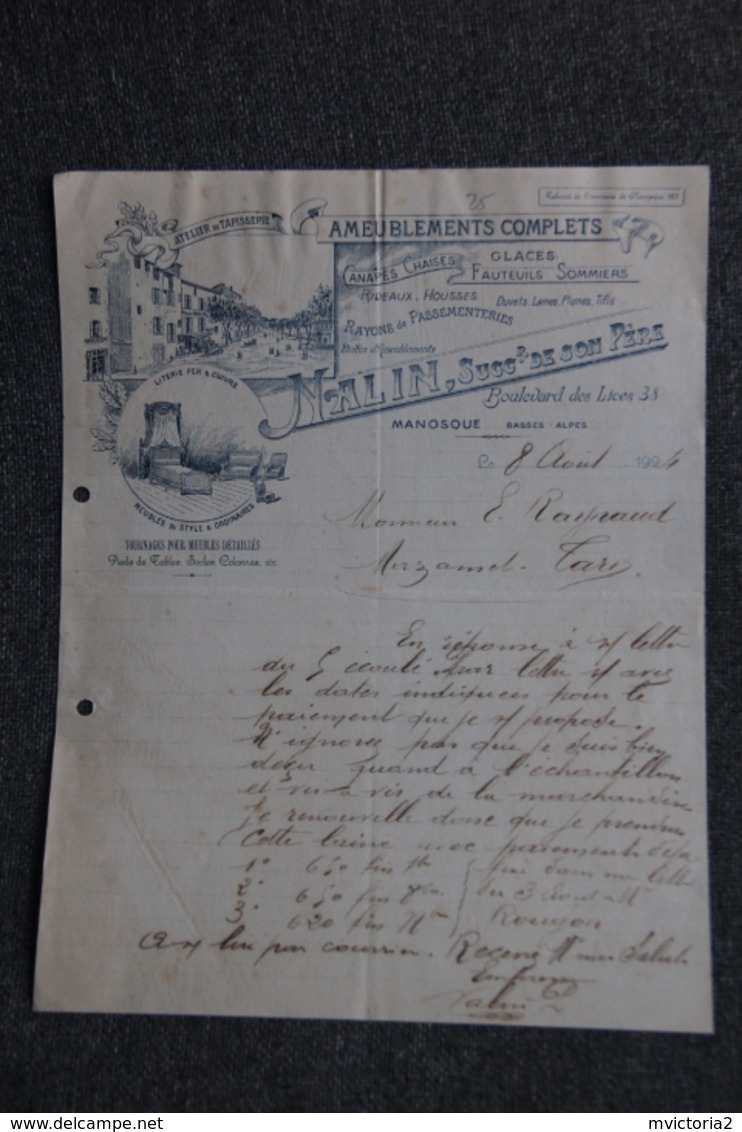 25
Tribunal de Commerce de Manosque, 107
ATELIER DE TAPISSERIE
AMEUBLEMENTS COMPLETS
CANAPÉS CHAISES
GLACES
FAUTEUILS SOMMIERS
RIDEAUX, HOUSSES
Duvets, Laines, Plumes, Tifis
RAYONS de PASSEMENTERIES
Etoffes d'Ameublements
MALIN, SUCCR DE SON PÈRE
Boulevard des Lices 38
MANOSQUE BASSES-ALPES
LITERIE FER & CUIVRE
MEUBLES DE STYLE & ORDINAIRES
TOURNAGES POUR MEUBLES DÉTAILLÉS
Pieds de Tables, Socles, Colonnes, etc.
Le 8 Août 1924
Monsieur E. Raynaud
Mazamet Tarn
En réponse à v/ lettre
du 5 écoulé par lettre v/ avec
les dates indiquées pour le
paiement que je v/ propose.
N'ignorez pas que je suis bien
déçu quand à l'échantillon
et vis à vis de la marchandise
Je renouvelle donc que je prendrai
cette laine avec paiements déjà
1° 650 fin 7bre
2° 650 fin 8bre
3° 620 fin Nbre
fixé dans ma lettre
du 3 Août à Mr
Rougon
A v/ lire par courrier. Recevez Mr mes Saluts
Empressés
Malin
www.delcampe.net
mvictoria2